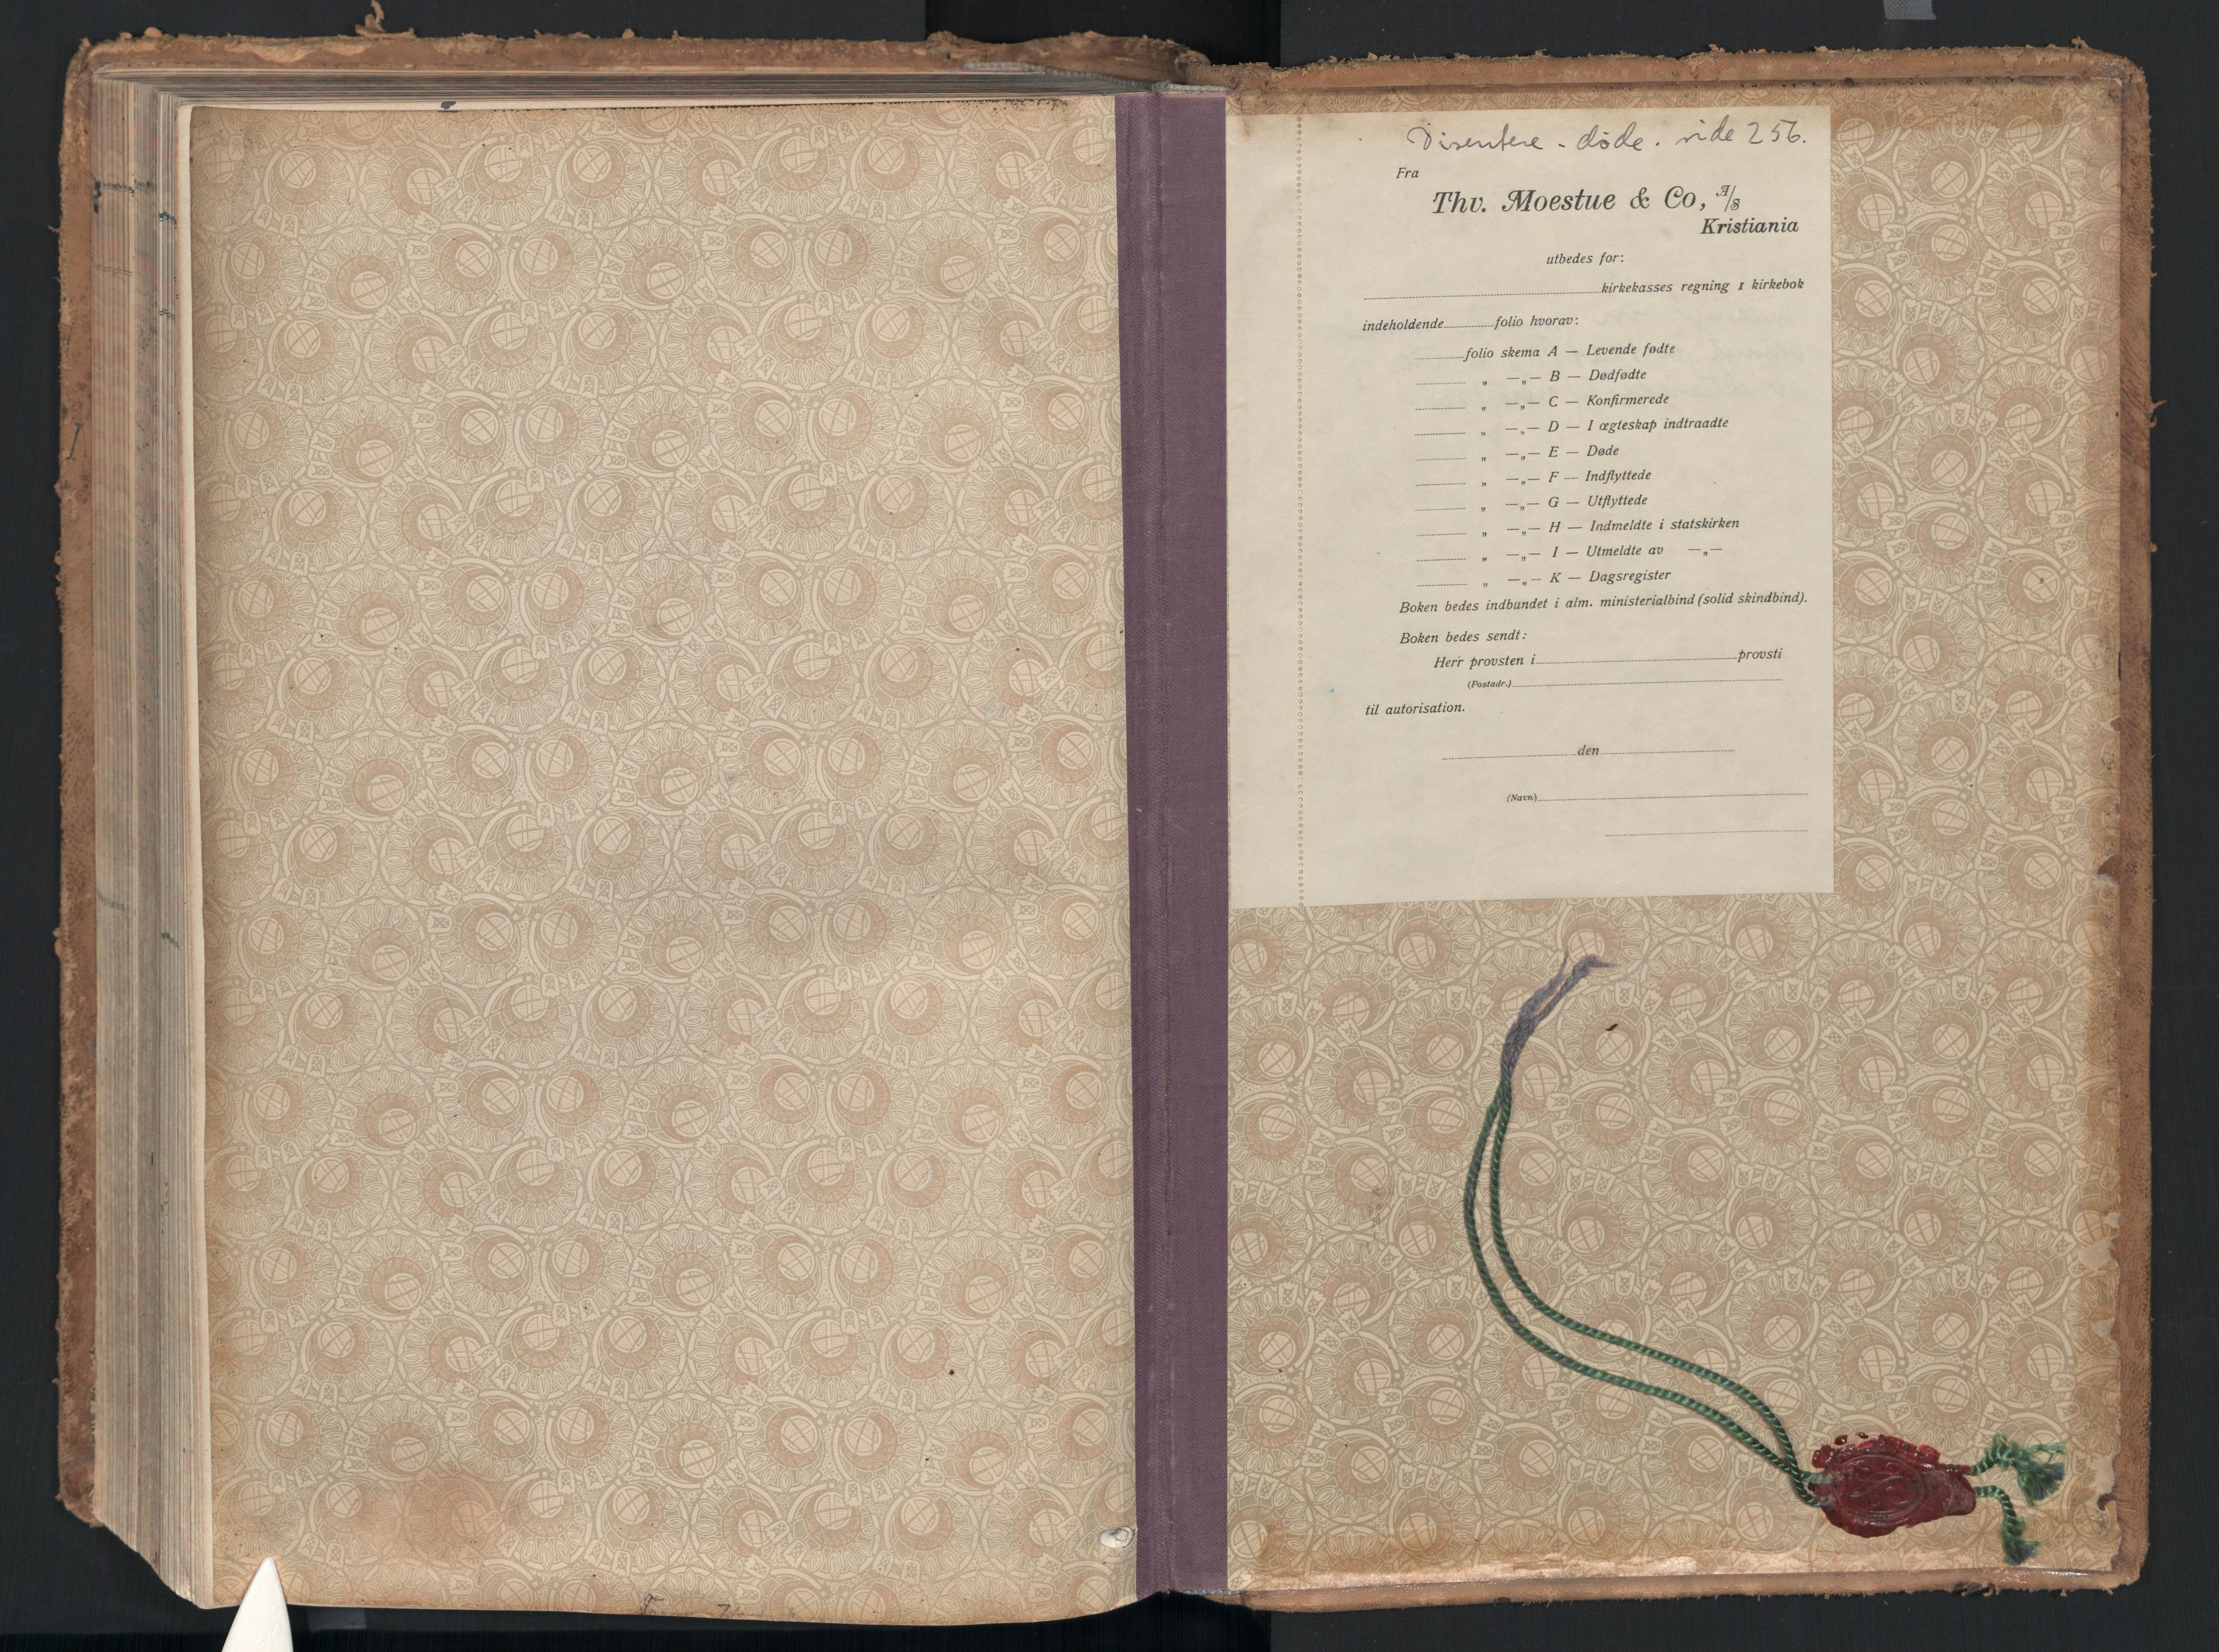 Disentere - døde. side 256.
Fra
Thv. Moestue & Co, A/S
Kristiania
utbedes for:
kirkekasses regning 1 kirkebok
indeholdende folio hvorav:
folio skema A — Levende fødte
„ —„— B — Dødfødte
„ —„— C — Konfirmerede
„ —„— D — I ægteskap indtraadte
„ —„— E — Døde
„ —„— F — Indflyttede
„ —„— G — Utflyttede
„ —„— H — Indmeldte i statskirken
„ —„— I — Utmeldte av —„—
„ —„— K — Dagsregister
Boken bedes indbundet i alm. ministerialbind (solid skindbind).
Boken bedes sendt:
Herr provsten i provsti
(Postadr.)
til autorisation.
den
(Navn)